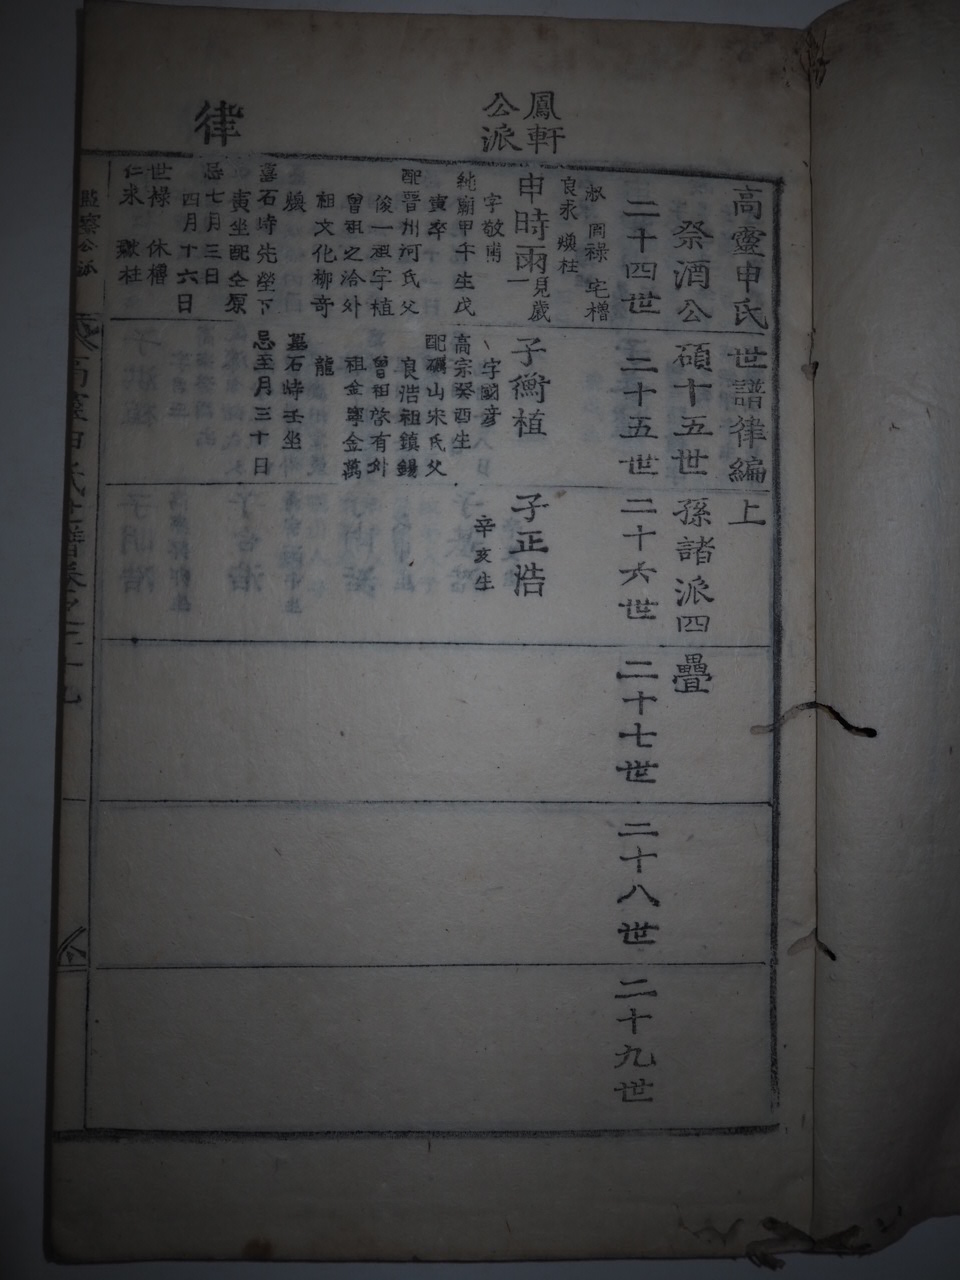 鳳軒
公派
律
高靈申氏世譜律編上
祭酒公碩十五世孫諸派四疊
二十四世
二十五世
二十六世
二十七世
二十八世
二十九世
良求 煥柱
申時雨一見歲
字敬甫
純廟甲午生戊
寅卒
配晋州河氏父
俊一祖字植
曾祖之洽外
祖文化柳奇
煥
墓石峙先塋下
寅坐配仝原
忌七月三日
四月十六日
世祿 休櫓
仁求 瓛柱
子衡植
字國彦
高宗癸酉生
配礪山宋氏父
良浩祖鎮錫
曾祖啓有外
祖金寧金萬
龍
墓石峙壬坐
忌至月三十日
子正浩
辛亥生